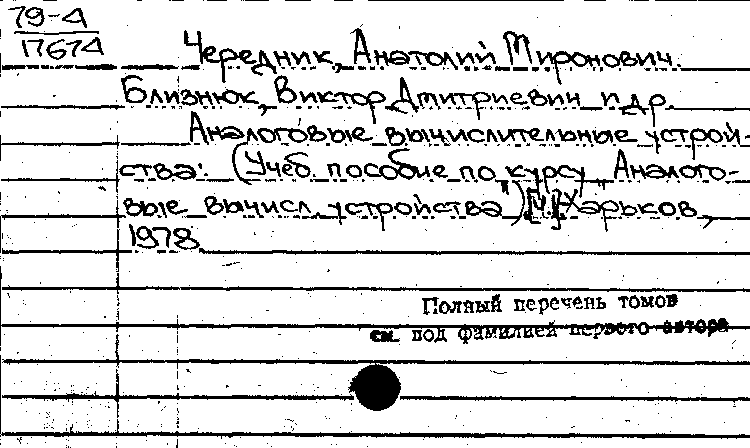 79-4
17674
Чередник, Анатолий Миронович.
Близнюк, Виктор Дмитриевич и др.
Аналоговые вычислительные устрой-
ства: (Учеб. пособие по курсу "Аналого-
вые вычисл. устройства") [Ч] Харьков,
1978.
Полный перечень томов
см. под фамилией первого автора